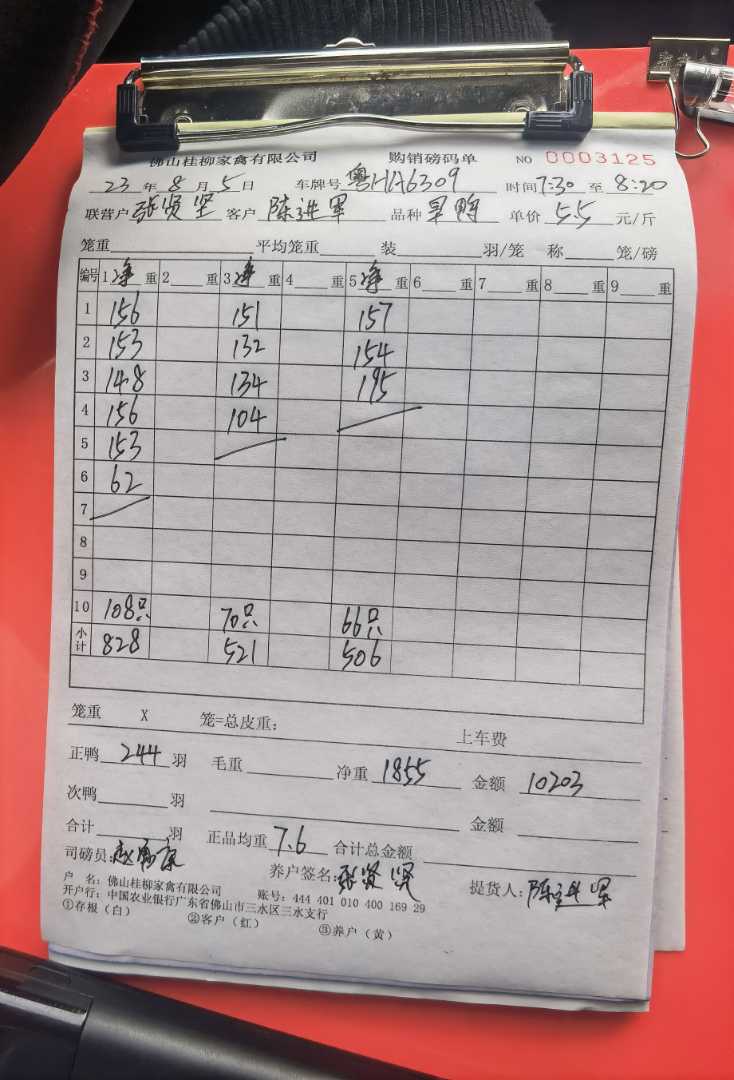 佛山桂柳家禽有限公司 购销磅码单 NO 0003125
23 年 8 月 5 日 车牌号 粤HA6309 时间 7:30 至 8:20
联营户 张贤坚 客户 陈进军 品种 旱鸭 单价 5.5 元/斤
笼重 平均笼重 装 羽/笼 称 笼/磅
编号 1 净 重 2 重 3 净 重 4 重 5 净 重 6 重 7 重 8 重 9 重
1 156 151 157
2 153 132 154
3 148 134 195
4 156 104
5 153
6 62
7
8
9
10 108只 70只 66只
小计 828 521 506
笼重 X 笼=总皮重: 上车费
正鸭 244 羽 毛重 净重 1855 金额 10203
次鸭 羽 金额
合计 羽 正品均重 7.6 合计总金额
司磅员: 养户签名: 张贤坚 提货人: 陈进军
户 名: 佛山桂柳家禽有限公司 账号: 444 401 010 400 169 29
开户行: 中国农业银行广东省佛山市三水区三水支行
①存根(白) ②客户(红) ③养户(黄)